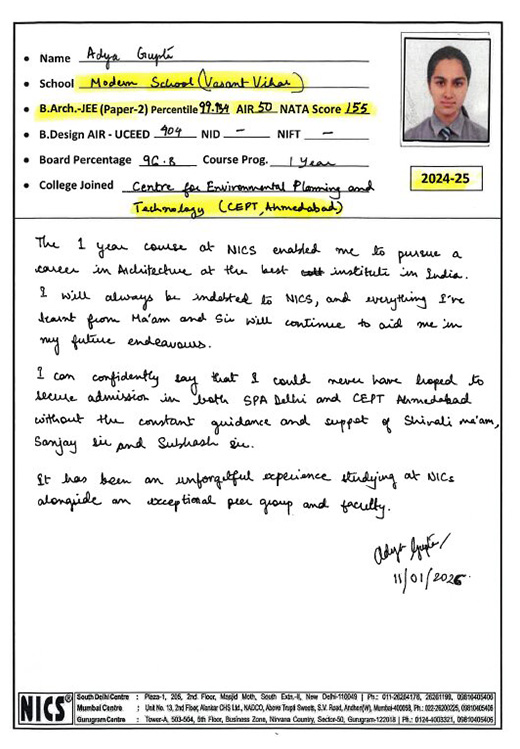 Name Adya Gupta
School Modern School (Vasant Vihar)
B.Arch.-JEE (Paper-2) Percentile 99.934 AIR 50 NATA Score 155
B.Design AIR - UCEED 404 NID – NIFT –
Board Percentage 96.8 Course Prog. 1 Year
2024-25
College Joined Centre for Environmental Planning and
Technology (CEPT, Ahmedabad)
The 1 year course at NICS enabled me to pursue a
career in Architecture at the best institute in India.
I will always be indebted to NICS, and everything I've
learnt from Ma'am and Sir will continue to aid me in
my future endeavours.
I can confidently say that I could never have hoped to
secure admission in both SPA Delhi and CEPT Ahmedabad
without the constant guidance and support of Shivali ma'am,
Sanjay sir and Subhash sir.
It has been an unforgetful experience studying at NICS
alongside an exceptional peer group and faculty.
Adya Gupta
11/01/2025
NICS®
South Delhi Centre : Plaza-1, 205, 2nd Floor, Masjid Moth, South Extn.-II, New Delhi-110049 | Ph.: 011-26264176, 26261199, 09810405406
Mumbai Centre : Unit No. 13, 2nd Floor, Alankar CHS Ltd., NADCO, Above Trupti Sweets, S.V. Road, Andheri(W), Mumbai-400058, Ph.: 022-26200225, 09810405406
Gurugram Centre : Tower-A, 503-504, 5th Floor, Business Zone, Nirvana Country, Sector-50, Gurugram-122018 | Ph.: 0124-4003321, 09810405406